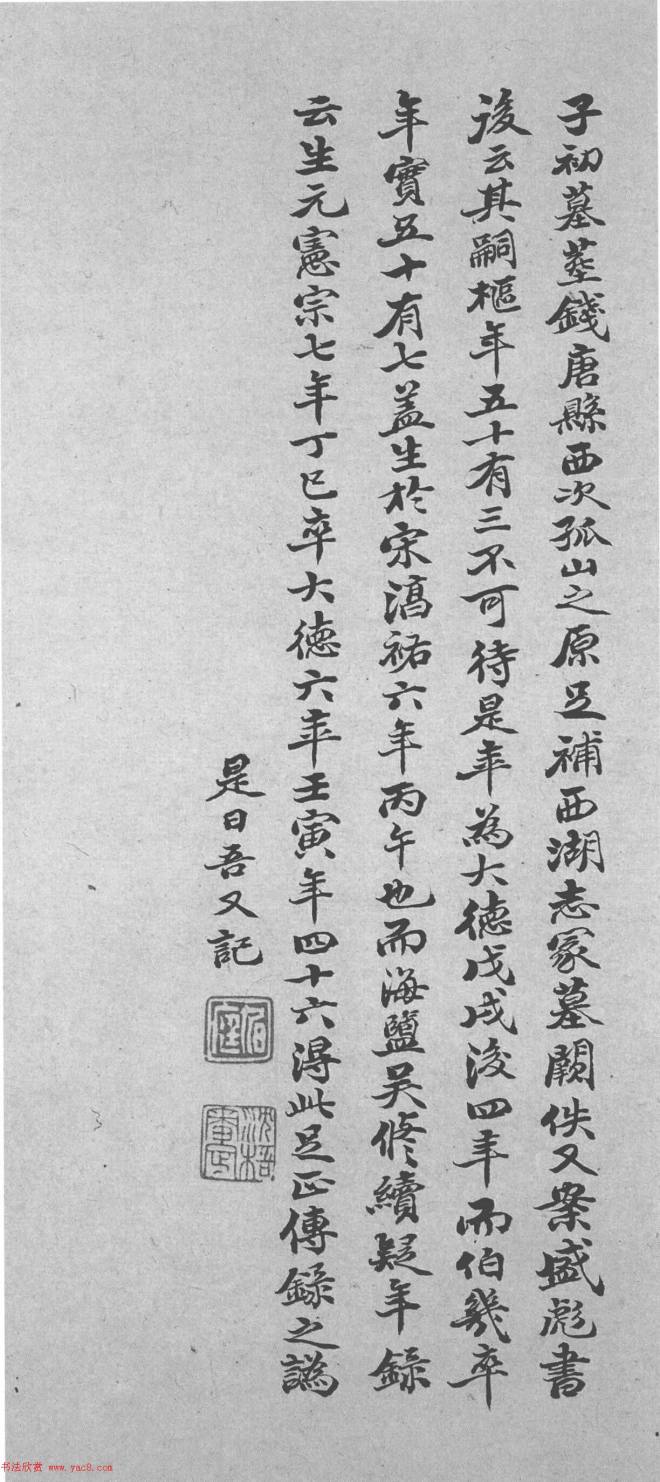 子初墓茔錢唐縣西次孤山之原足補西湖志冢墓闕佚又案盛彪書
後云其嗣樞年五十有三不可待是年為大德戊戌後四年而伯幾卒
年實五十有七蓋生於宋淳祐六年丙午也而海鹽吴修續疑年錄
云生元憲宗七年丁巳卒大德六年壬寅年四十六得此足正傳錄之譌
是日吾又記
书法欣赏 www.yac8.com